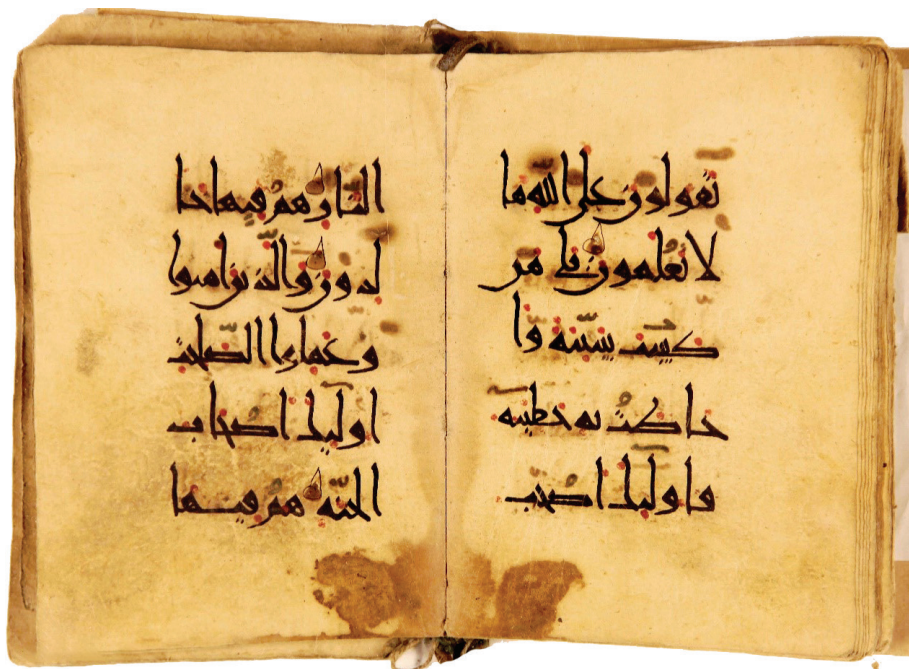 تقولون على الله ما
لا تعلمون بلى من
كسب سيّئة وا
حاطت به خطيته
فاوليك اصحب
النار هم فيها خا
لدون والذين امنوا
وعملوا الصلحت
اوليك اصحاب
الجنّة هم فيها